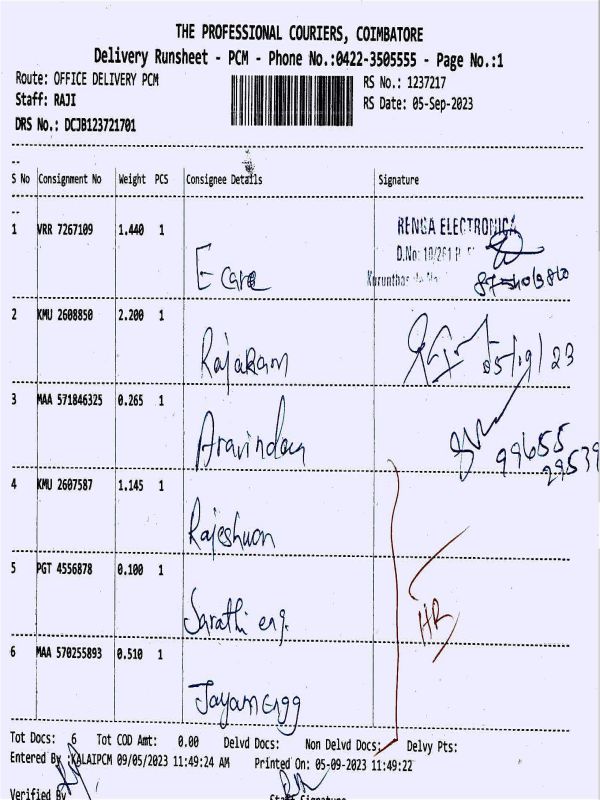 THE PROFESSIONAL COURIERS, COIMBATORE
Delivery Runsheet - PCM - Phone No.:0422-3505555 - Page No.:1
Route: OFFICE DELIVERY PCM
RS No.: 1237217
Staff: RAJI
RS Date: 05-Sep-2023
DRS No.: DCJB123721701
S No Consignment No Weight PCS Consignee Details Signature
1 VRR 7267109 1.440 1
RENGA ELECTRONICA
D.No: 10/261
E care
2 KMU 2608850 2.200 1
Rajaram 05/9/23
3 MAA 571846325 0.265 1
Aravindan 99655
29539
4 KMU 2607587 1.145 1
Rajeshwari
5 PGT 4556878 0.100 1
Sarathi eng. HR
6 MAA 570255893 0.510 1
Jayam engg
Tot Docs: 6 Tot COD Amt: 0.00 Delvd Docs: Non Delvd Docs: Delvy Pts:
Entered By :KALAIPCM 09/05/2023 11:49:24 AM Printed On: 05-09-2023 11:49:22
Verified By Staff Signature